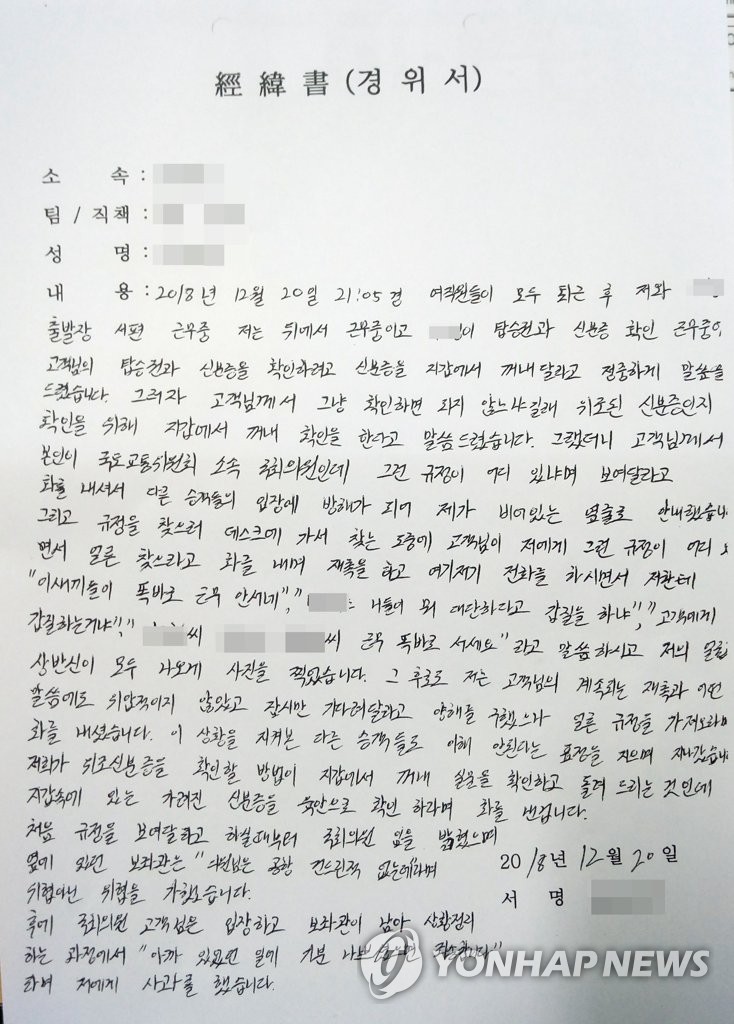 經 緯 書 (경 위 서)
소 속 :
팀 / 직책 :
성 명 :
내 용 : 2018년 12월 20일 21:05경 여직원들이 모두 퇴근 후 저와
출발장 서편 근무중 저는 뒤에서 근무중이고 이 탑승권과 신분증 확인 근무중이
고객님의 탑승권과 신분증을 확인하려고 신분증을 지갑에서 꺼내달라고 정중하게 말씀을
드렸습니다. 그러자 고객님께서 그냥 확인하면 되지 않느냐길래 위조된 신분증인지
확인을 위해 지갑에서 꺼내 확인을 한다고 말씀드렸습니다. 그랬더니 고객님께서
본인이 국토교통위원회 소속 국회의원인데 그런 규정이 어디 있냐며 보여달라고
화를 내셔서 다른 승객들의 입장에 방해가 되어 제가 비어있는 옆줄로 안내했습니
그리고 규정을 찾으러 데스크에 가서 찾는 도중에 고객님이 저에게 그런 규정이 어디
면서 얼른 찾으라고 화를 내며 재촉을 하고 여기저기 전화를 하시면서 저한테
"이새끼들이 똑바로 근무 안서네", " 니들이 뭐 대단하다고 갑질을 하냐", "고객에게
갑질하는거냐", " 씨 씨 근무 똑바로 서세요"라고 말씀하시고 저의 얼굴
상반신이 모두 나오게 사진을 찍었습니다. 그 후로도 저는 고객님의 계속되는 재촉과 어떤
말씀에도 위압적이지 않았고 잠시만 기다려달라고 양해를 구했으나 얼른 규정을 가져오라며
화를 내셨습니다. 이 상황을 지켜본 다른 승객들도 이해 안된다는 표정을 지으며 지나갔습니
저희가 위조신분증을 확인할 방법이 지갑에서 꺼내 확인하고 돌려 드리는 것인데
지갑속에 있는 가려진 신분증을 육안으로 확인 하라며 화를 낸겁니다.
처음 규정을 보여달라고 하실때부터 국회의원 임을 밝혔으며
옆에 있던 보좌관은 "의원님은 공항 건드린적 없는데"라며
위협아닌 위협을 가했습니다.
2018년 12월 20일
서 명
후에 국회의원 고객님은 입장하고 보좌관이 남아 상황정리
하는 과정에서 "아까 있었던 일에 기분 나빴으면
하며 저에게 사과를 했습니다.
YONHAP NEWS